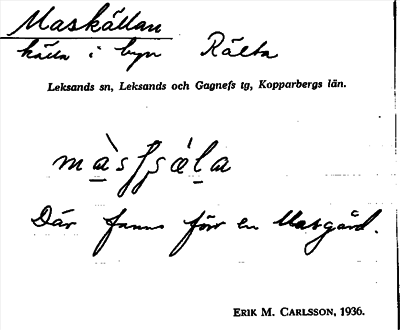 Maskällan
källa i byn Rälta
Leksands sn, Leksands och Gagnefs tg, Kopparbergs län.
Där fanns förr en Masgård.
ERIK M. CARLSSON, 1936.